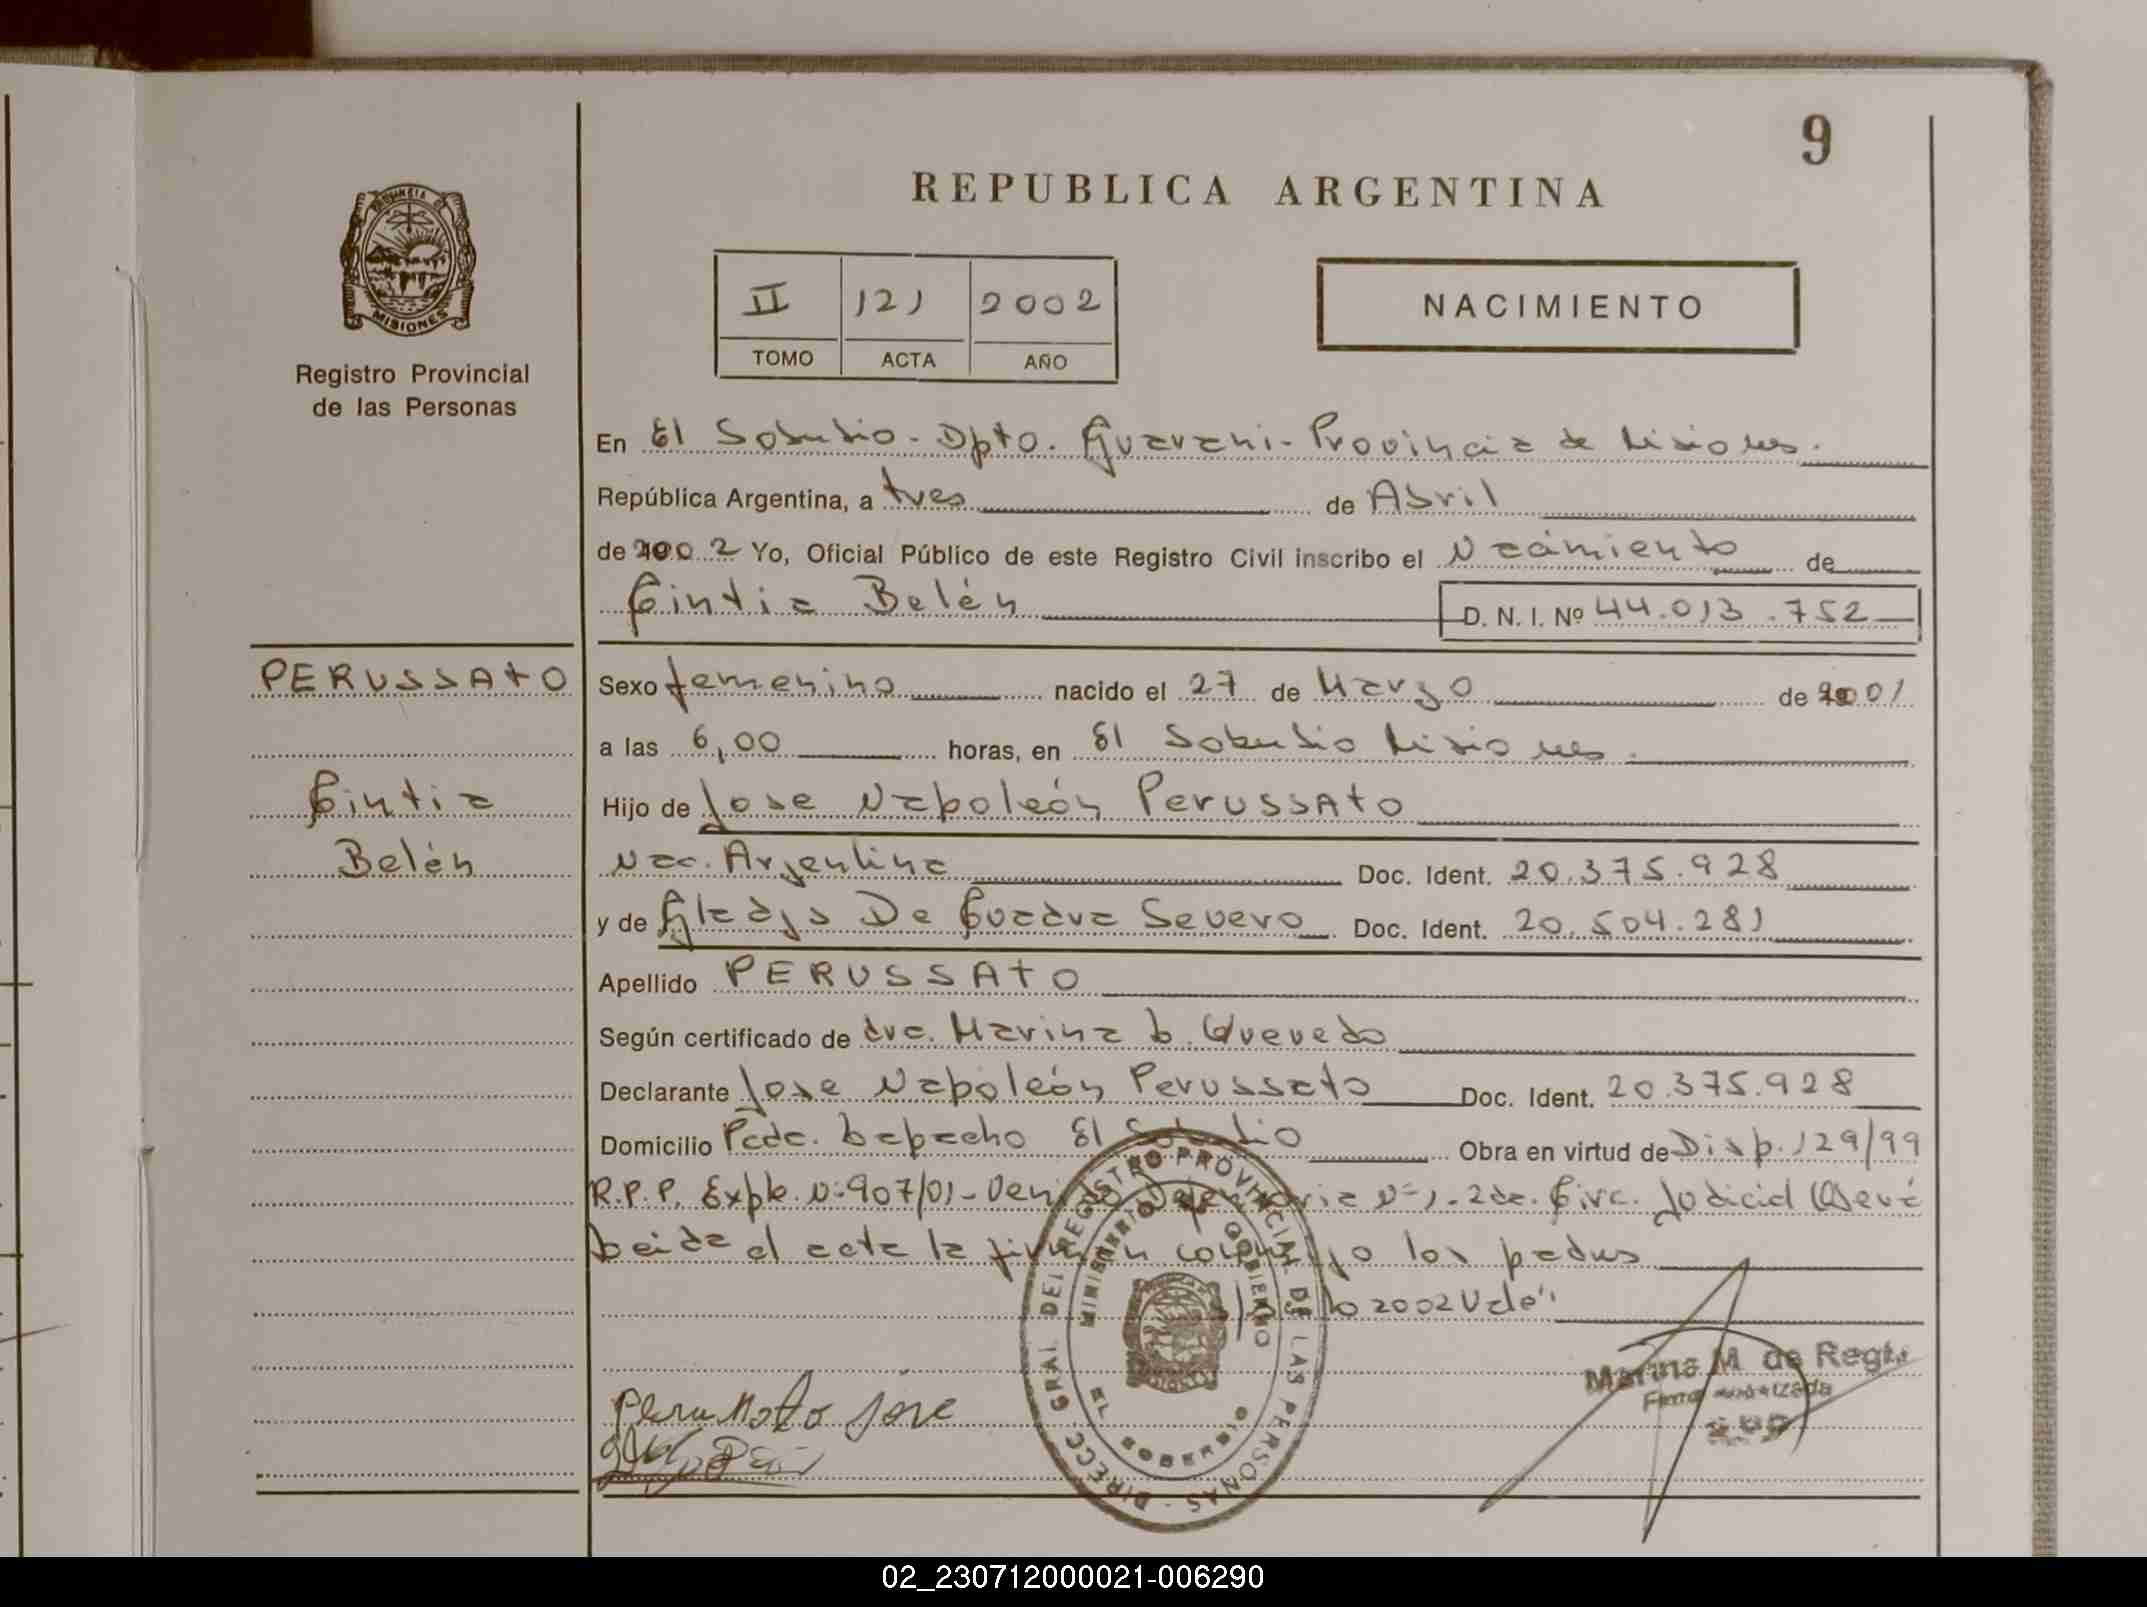 9
REPUBLICA ARGENTINA
PROVINCIA DE
MISIONES
Registro Provincial
de las Personas
II 121 2002
TOMO ACTA AÑO
NACIMIENTO
En El Soberbio - Dpto. Guarani - Provincia de Misiones.
República Argentina, a tres de Abril
de 2002 Yo, Oficial Público de este Registro Civil inscribo el Nacimiento de
Cintia Belén D. N. I. Nº 44.013.752
PERUSSATO
Cintia
Belén
Sexo femenino nacido el 27 de Marzo de 2001
a las 6,00 horas, en El Soberbio Misiones.
Hijo de Jose Napoleón Perussato
Nac. Argentina Doc. Ident. 20.375.928
y de Gladys De Severo Doc. Ident. 20.504.281
Apellido PERUSSATO
Según certificado de Marina Quevedo
Declarante Jose Napoleón Perussato Doc. Ident. 20.375.928
Domicilio Pcde. El Soberbio Obra en virtud de Disp. 129/99
R.P.P. Expte. Nº 907/01 - Nº 1. 2da. Circ. Judicial
Leida el acta la firman conmigo los padres
2002 Vale
Perussato Jose
DIRECC. GRAL. DEL REGISTRO PROVINCIAL DE LAS PERSONAS
MINISTERIO DE GOBIERNO
EL SOBERBIO
Marina M. de Regis
Firma autorizada
02_230712000021-006290